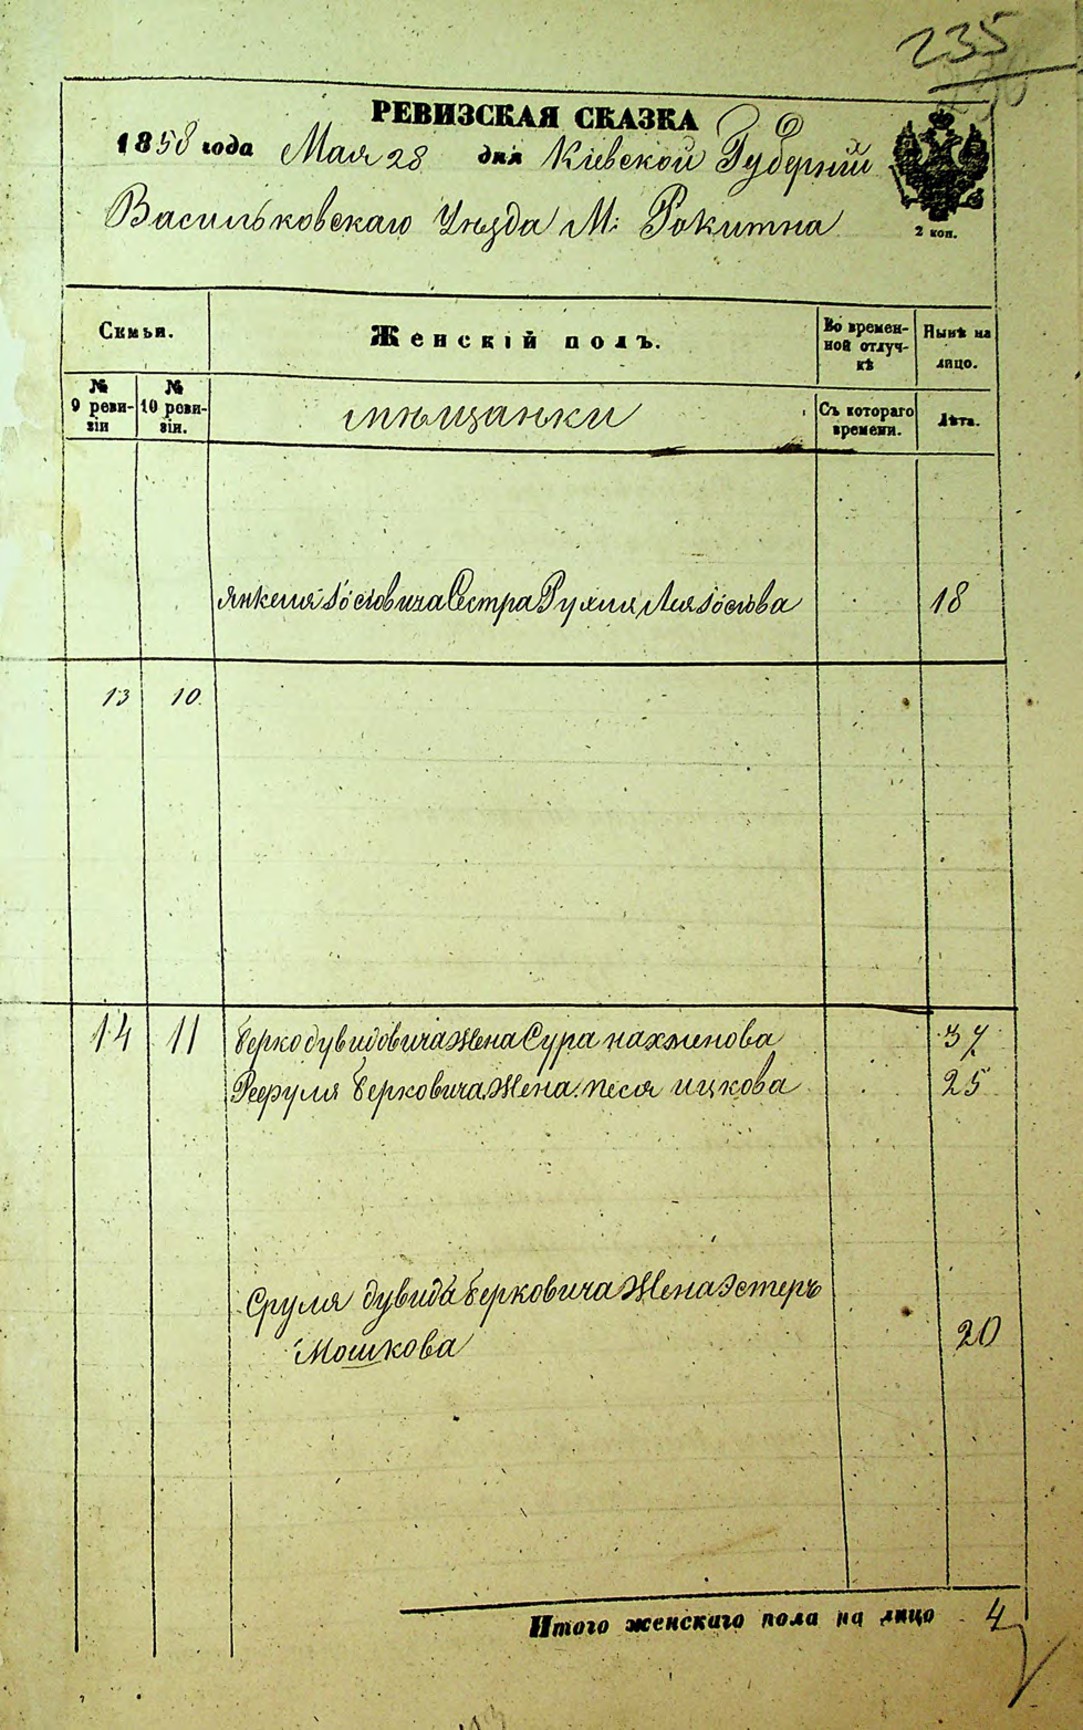 235
РЕВИЗСКАЯ СКАЗКА
1858 года Мая 28 дня Кіевской Губерніи
Васильковскаго Уѣзда М: Рокитна
2 коп.
Семьи.
Женскій полъ.
Во времен-
ной отлуч-
кѣ
Нынѣ на
лицо.
№
9 реви-
зіи
№
10 реви-
зіи.
мѣщанки
Съ котораго
времени.
Лѣта.
Янкеля Іосіовича Сестра Рухля Лея Іосіова 18
13 10
14 11 Берко дувидовича Жена Сура нахменова 37
Рефуля Берковича Жена песя ицкова 25
Сруля дувида Берковича Жена Эстеръ
Мошкова 20
Итого женскаго пола на лицо 4